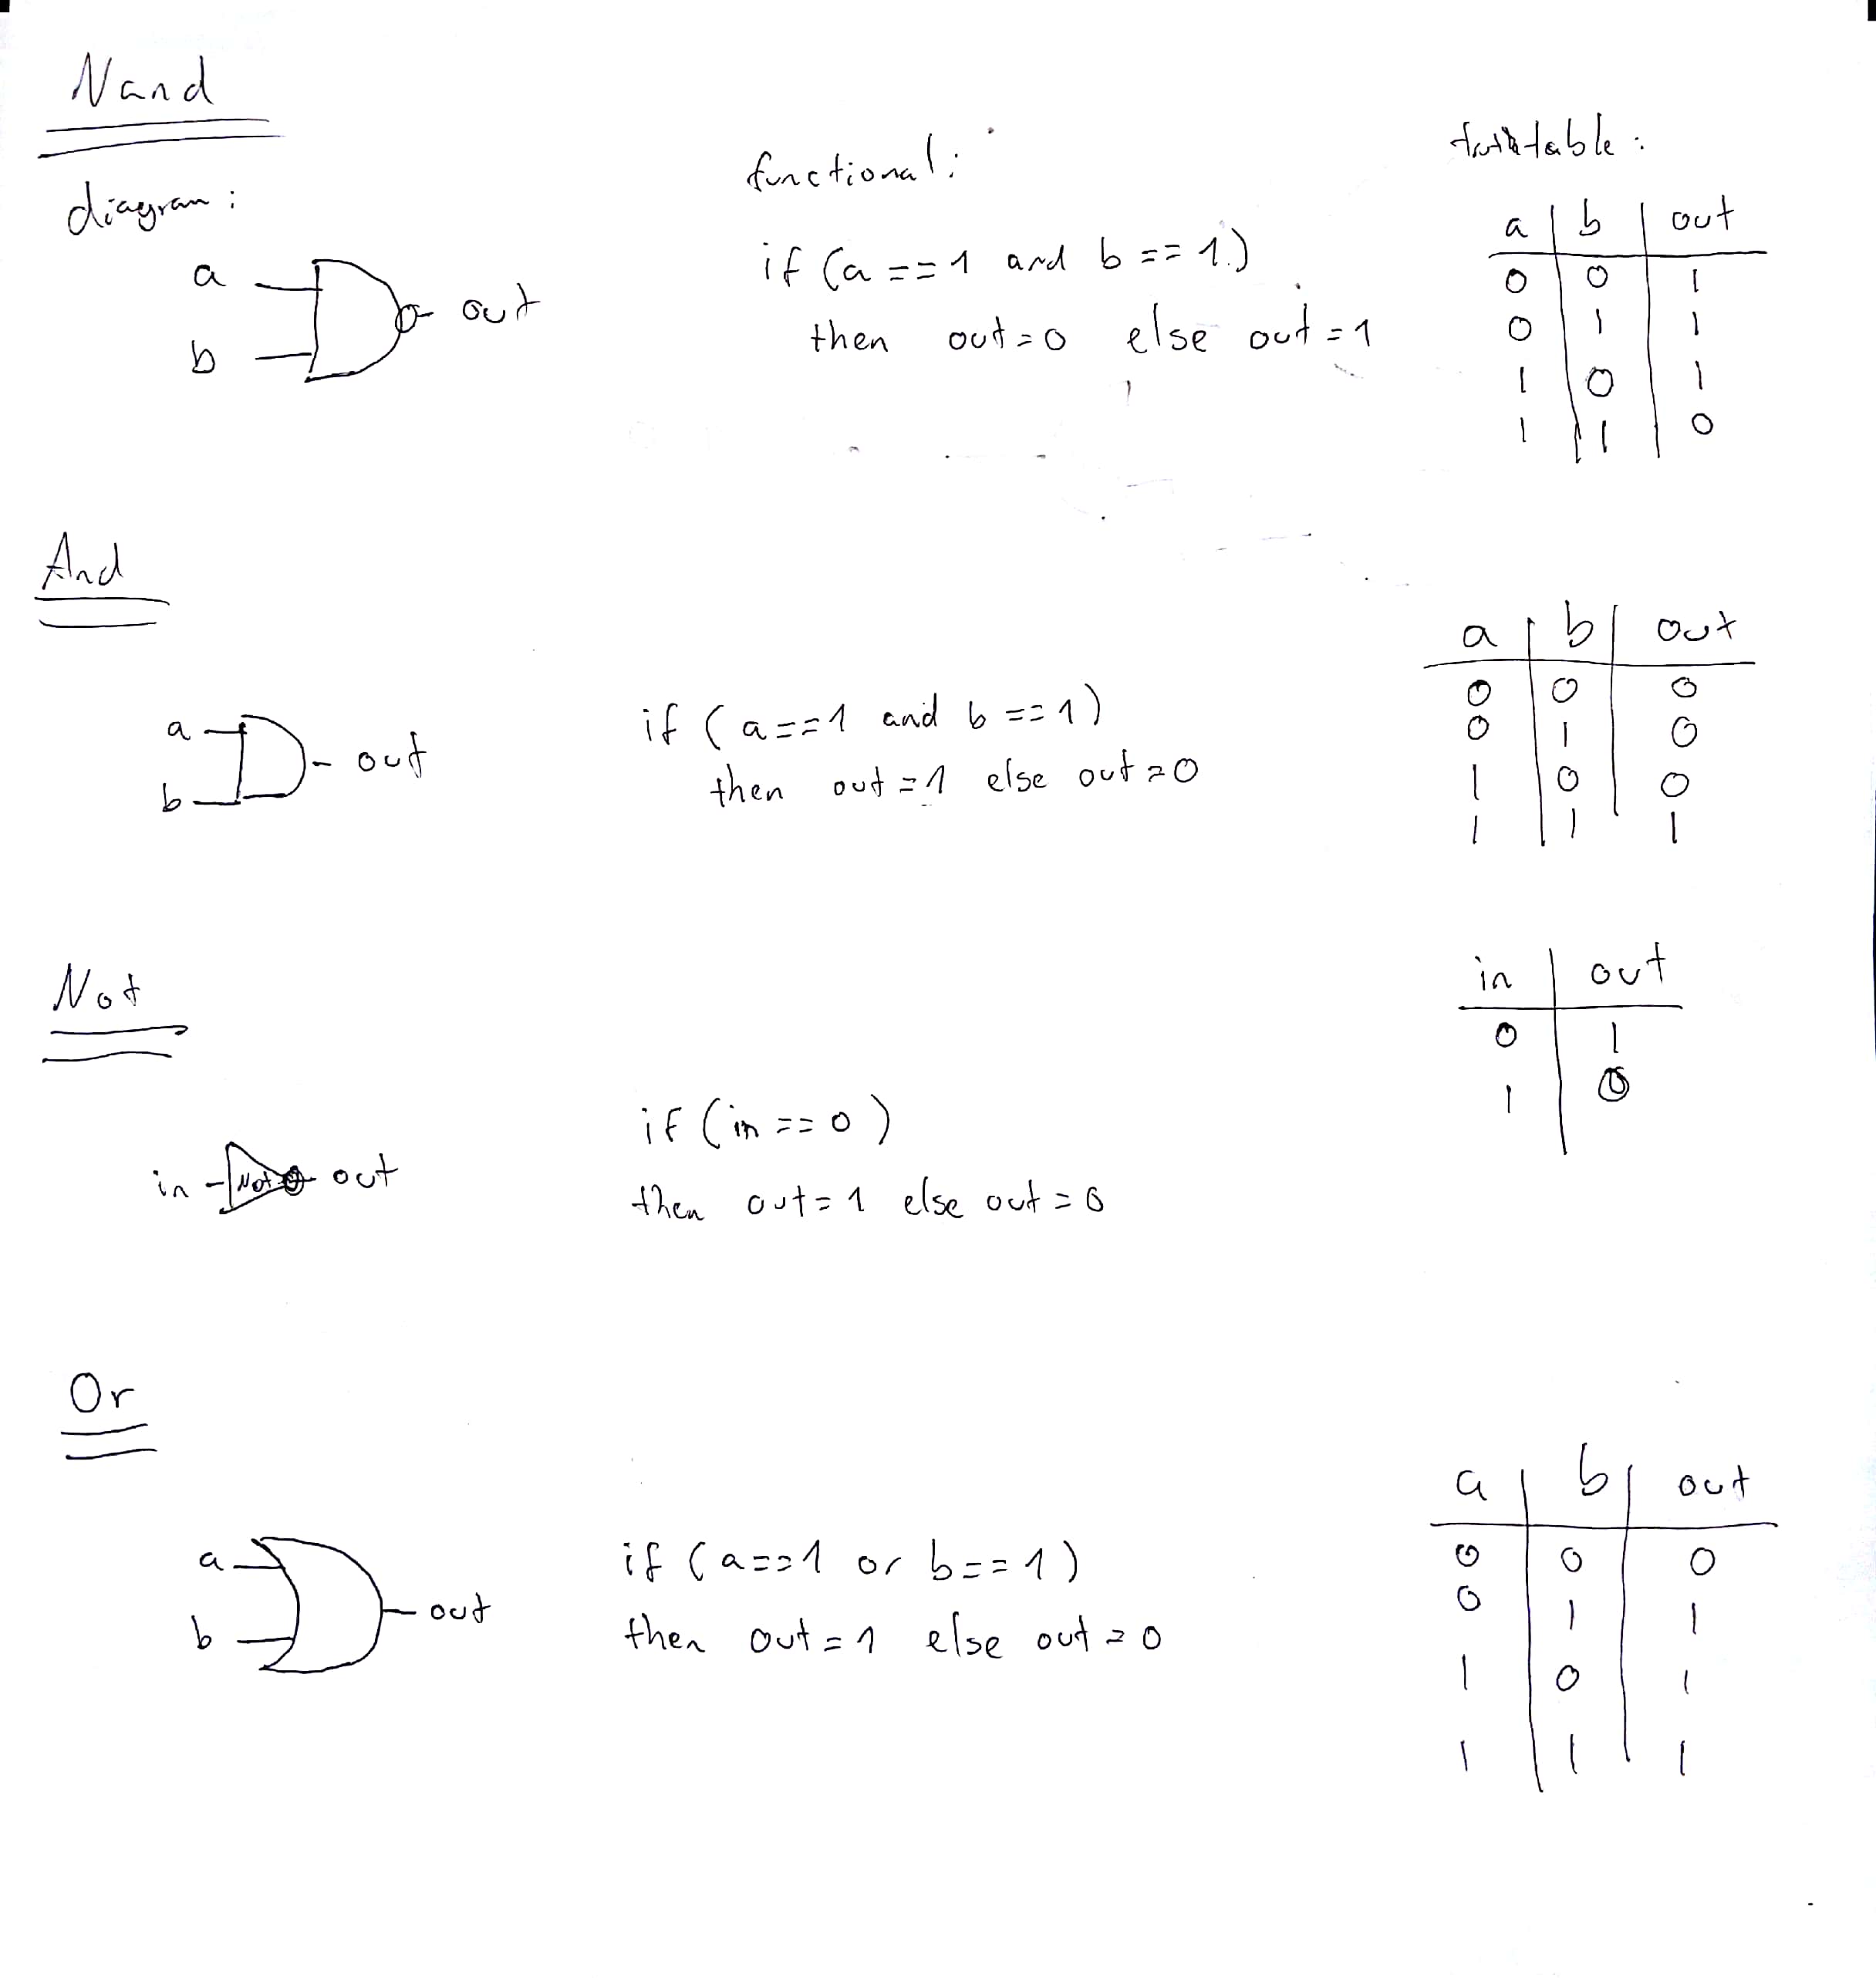 Nand
diagram:
functional:
truthtable:
a
b
out
if (a == 1 and b == 1)
then out = 0 else out = 1
a b out
0 0 1
0 1 1
1 0 1
1 1 0
And
a
b
out
if (a == 1 and b == 1)
then out = 1 else out = 0
a b out
0 0 0
0 1 0
1 0 0
1 1 1
Not
in Not out
if (in == 0)
then out = 1 else out = 0
in out
0 1
1 0
Or
a
b
out
if (a == 1 or b == 1)
then out = 1 else out = 0
a b out
0 0 0
0 1 1
1 0 1
1 1 1